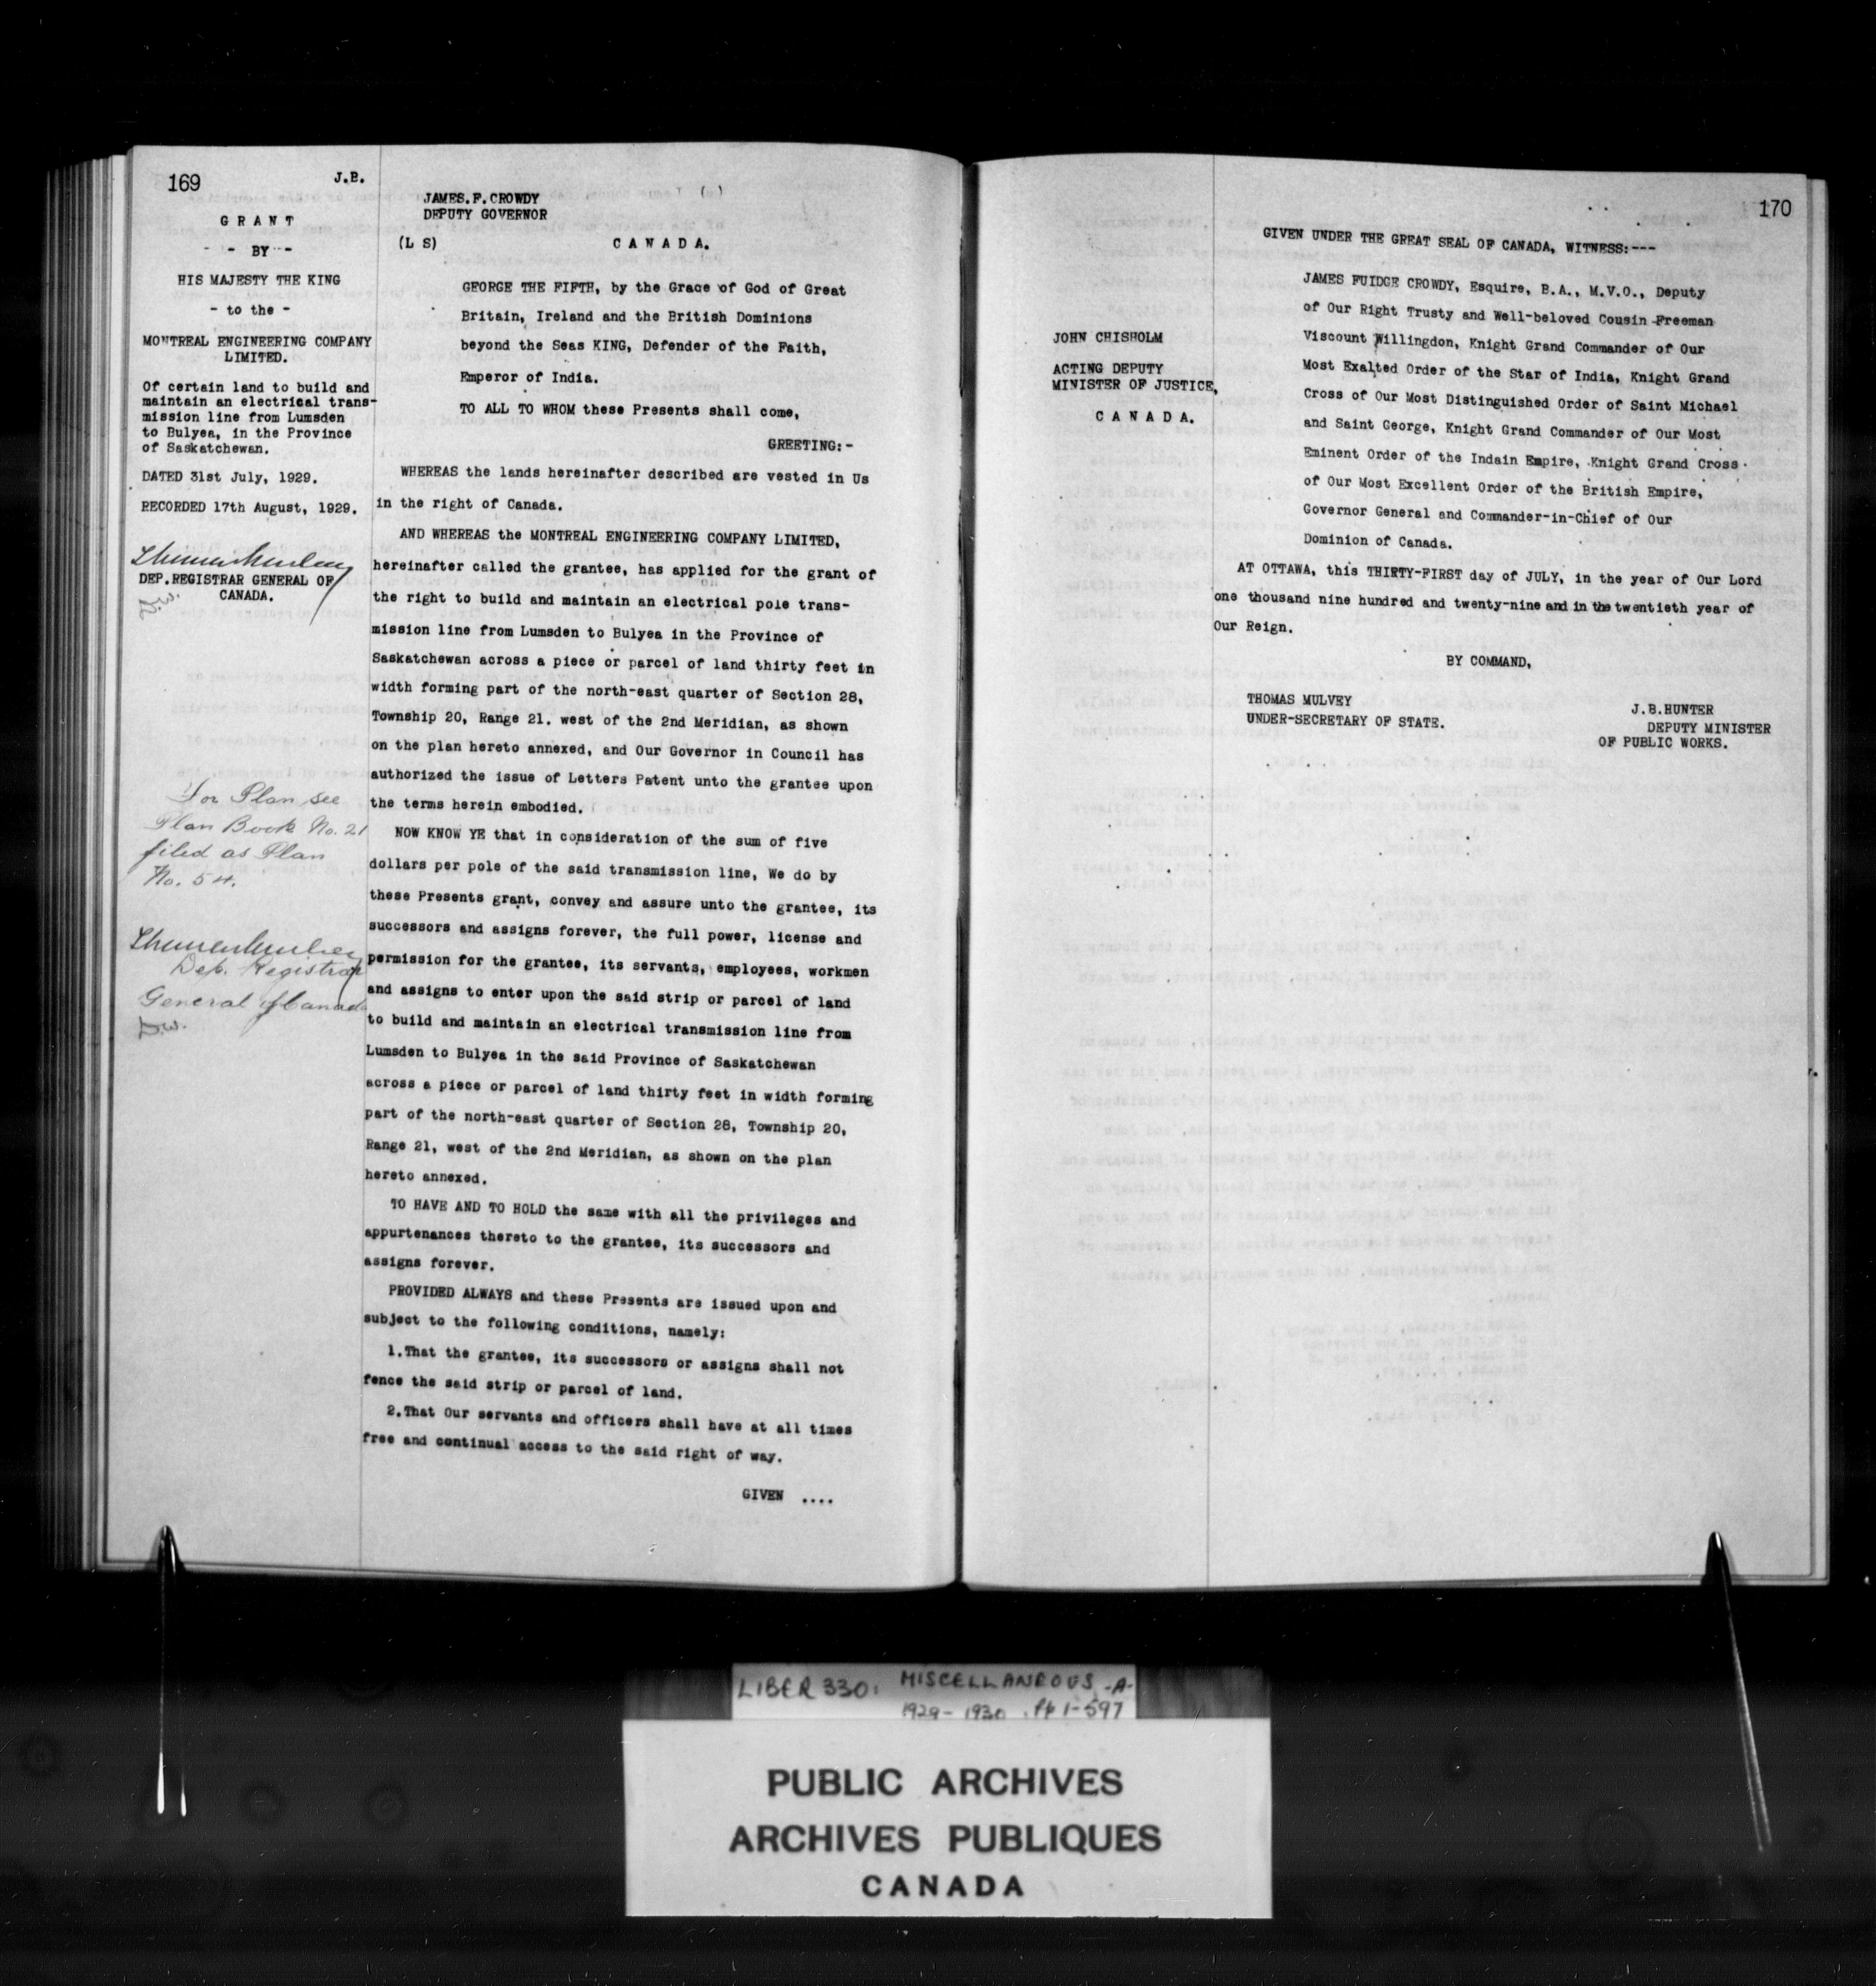 169
J.B.
GRANT
- BY -
HIS MAJESTY THE KING
- to the -
MONTREAL ENGINEERING COMPANY
LIMITED.
Of certain land to build and
maintain an electrical trans-
mission line from Lumsden
to Bulyea, in the Province
of Saskatchewan.
DATED 31st July, 1929.
RECORDED 17th August, 1929.
DEP.REGISTRAR GENERAL OF
CANADA.
D.W.
For Plan see
Plan Book No. 21
filed as Plan
No. 54.
Dep. Registrar
General of Canada
D.W.
JAMES.F.CROWDY
DEPUTY GOVERNOR
(L S)
CANADA.
GEORGE THE FIFTH, by the Grace of God of Great
Britain, Ireland and the British Dominions
beyond the Seas KING, Defender of the Faith,
Emperor of India.
TO ALL TO WHOM these Presents shall come,
GREETING:-
WHEREAS the lands hereinafter described are vested in Us
in the right of Canada.
AND WHEREAS the MONTREAL ENGINEERING COMPANY LIMITED,
hereinafter called the grantee, has applied for the grant of
the right to build and maintain an electrical pole trans-
mission line from Lumsden to Bulyea in the Province of
Saskatchewan across a piece or parcel of land thirty feet in
width forming part of the north-east quarter of Section 28,
Township 20, Range 21. west of the 2nd Meridian, as shown
on the plan hereto annexed, and Our Governor in Council has
authorized the issue of Letters Patent unto the grantee upon
the terms herein embodied.
NOW KNOW YE that in consideration of the sum of five
dollars per pole of the said transmission line, We do by
these Presents grant, convey and assure unto the grantee, its
successors and assigns forever, the full power, license and
permission for the grantee, its servants, employees, workmen
and assigns to enter upon the said strip or parcel of land
to build and maintain an electrical transmission line from
Lumsden to Bulyea in the said Province of Saskatchewan
across a piece or parcel of land thirty feet in width forming
part of the north-east quarter of Section 28, Township 20,
Range 21, west of the 2nd Meridian, as shown on the plan
hereto annexed.
TO HAVE AND TO HOLD the same with all the privileges and
appurtenances thereto to the grantee, its successors and
assigns forever.
PROVIDED ALWAYS and these Presents are issued upon and
subject to the following conditions, namely:
1.That the grantee, its successors or assigns shall not
fence the said strip or parcel of land.
2.That Our servants and officers shall have at all times
free and continual access to the said right of way.
GIVEN ....
170
GIVEN UNDER THE GREAT SEAL OF CANADA, WITNESS:---
JAMES FUIDGE CROWDY, Esquire, B.A., M.V.O., Deputy
of Our Right Trusty and Well-beloved Cousin Freeman
Viscount Willingdon, Knight Grand Commander of Our
Most Exalted Order of the Star of India, Knight Grand
Cross of Our Most Distinguished Order of Saint Michael
and Saint George, Knight Grand Commander of Our Most
Eminent Order of the Indain Empire, Knight Grand Cross
of Our Most Excellent Order of the British Empire,
Governor General and Commander-in-Chief of Our
Dominion of Canada.
JOHN CHISHOLM
ACTING DEPUTY
MINISTER OF JUSTICE,
CANADA.
AT OTTAWA, this THIRTY-FIRST day of JULY, in the year of Our Lord
one thousand nine hundred and twenty-nine and in the twentieth year of
Our Reign.
BY COMMAND,
THOMAS MULVEY
UNDER-SECRETARY OF STATE.
J.B.HUNTER
DEPUTY MINISTER
OF PUBLIC WORKS.
LIBER 330: MISCELLANEOUS -A-
1929-1930 . Pp 1-597
PUBLIC ARCHIVES
ARCHIVES PUBLIQUES
CANADA